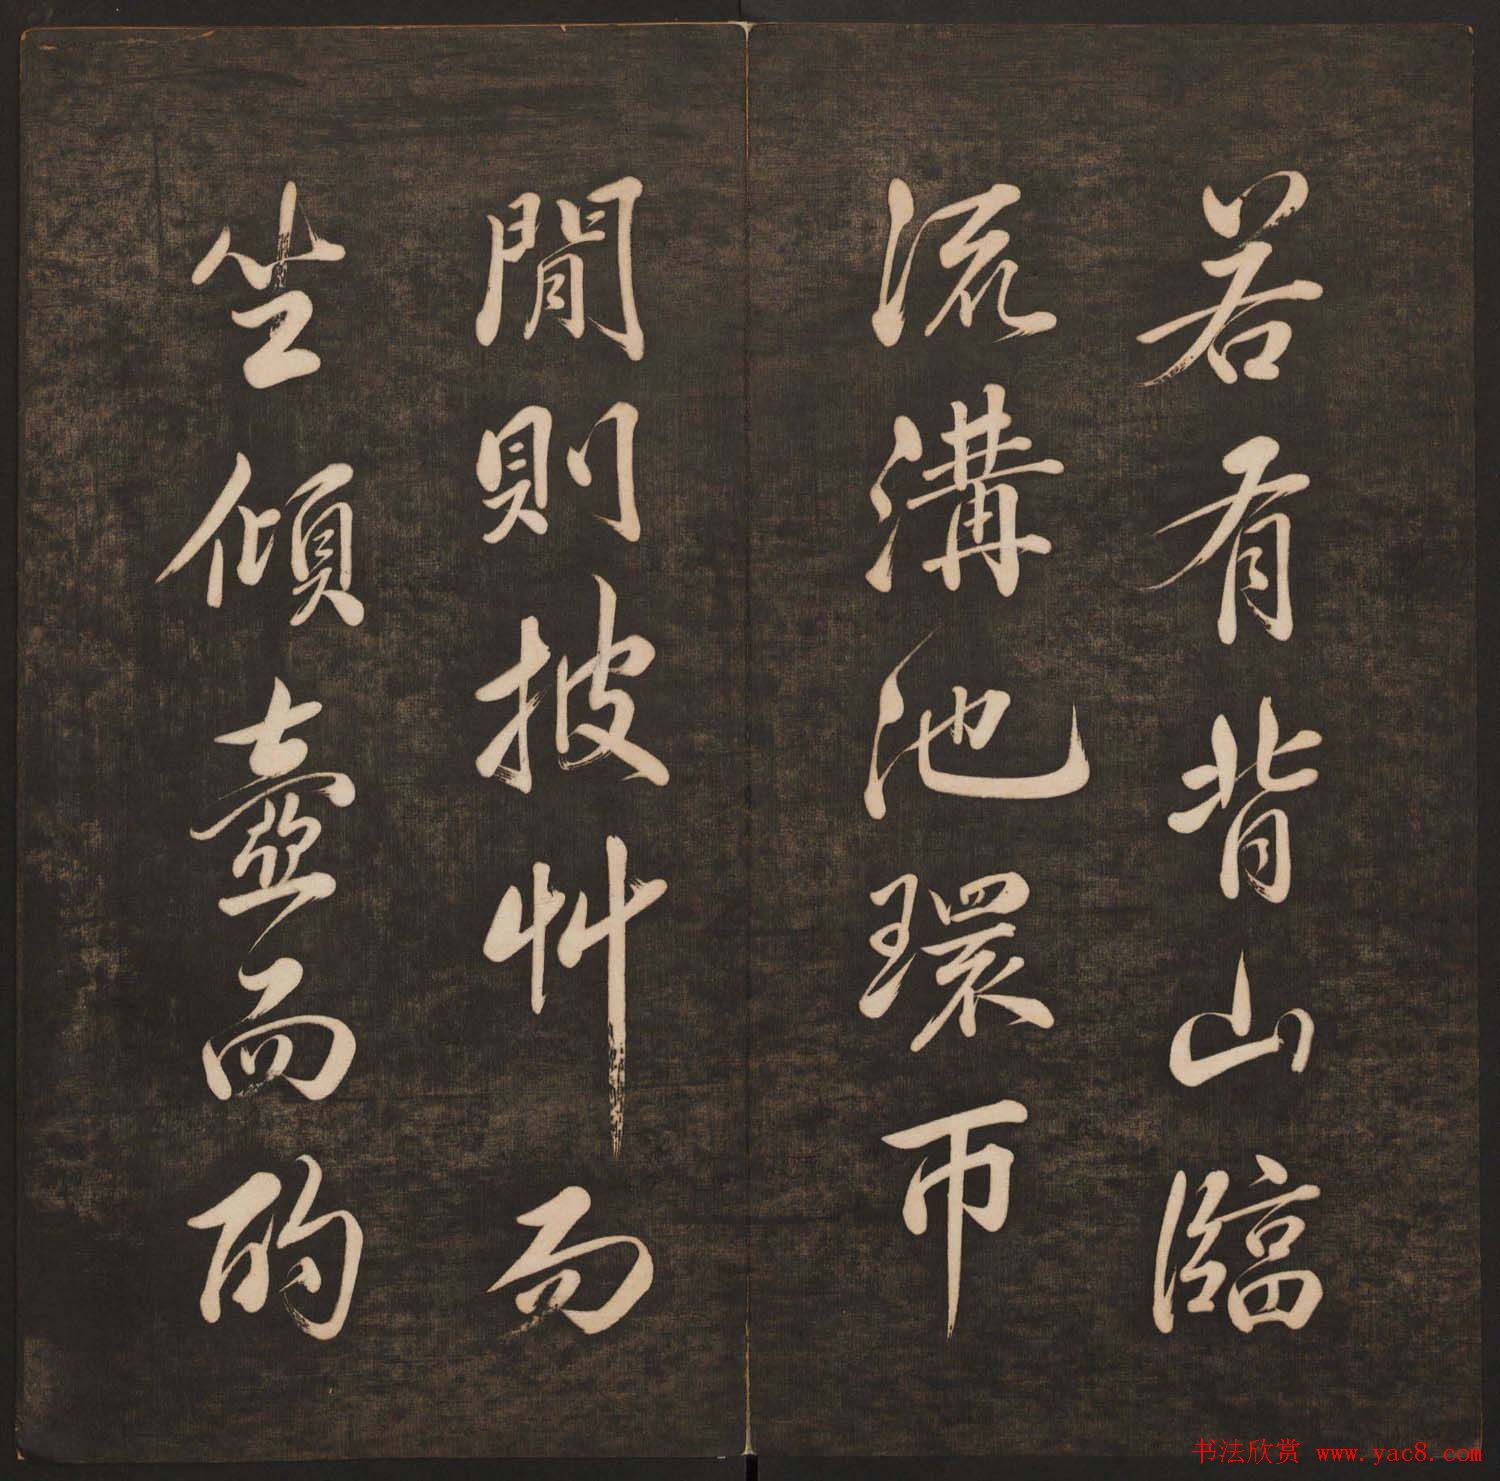 若有背山臨
流溝池環帀
閒則披艸而
坐傾壺而酌
书法欣赏 www.yac8.com